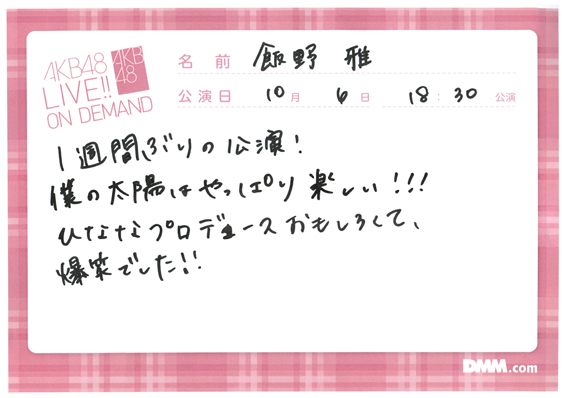 AKB48
LIVE!!
ON DEMAND
AKB
48
名前 飯野 雅
公演日 10月 6日 18:30 公演
1週間ぶりの公演!
僕の太陽はやっぱり楽しい!!!
ひななプロデュースおもしろくて、
爆笑でした!!
DMM.com